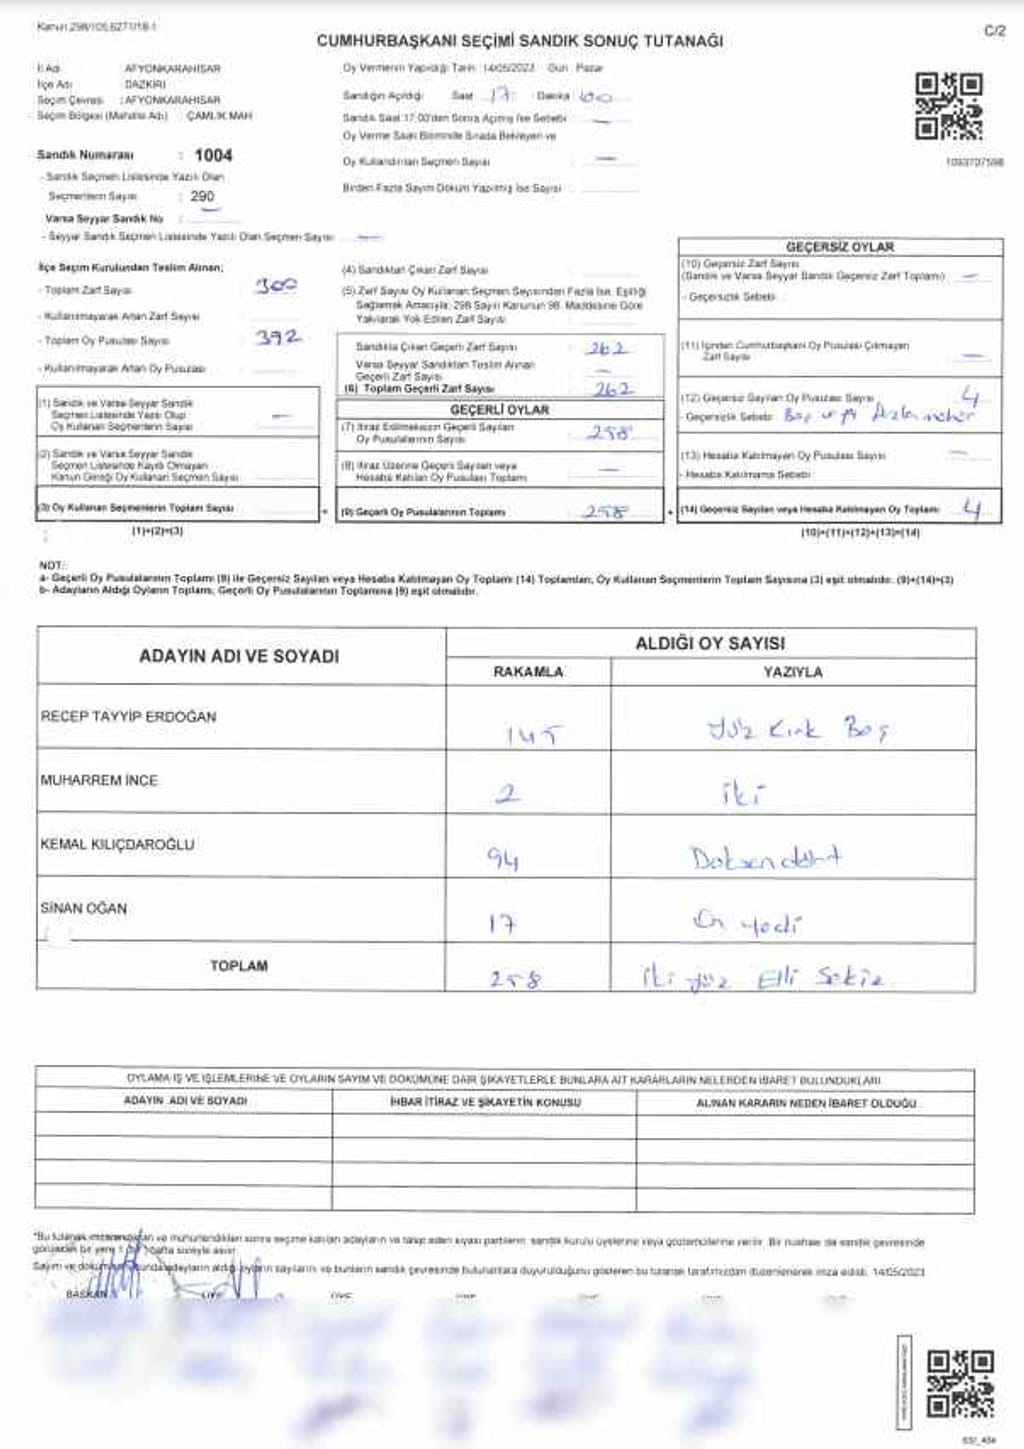 Kanun 298/105,6271/18-1
C/2
CUMHURBAŞKANI SEÇİMİ SANDIK SONUÇ TUTANAĞI
İl Adı : AFYONKARAHİSAR
İlçe Adı : DAZKIRI
Seçim Çevresi : AFYONKARAHİSAR
Seçim Bölgesi (Mahalle Adı) : ÇAMLIK MAH
Sandık Numarası : 1004
- Sandık Seçmen Listesinde Yazılı Olan
Seçmenlerin Sayısı : 290
Varsa Seyyar Sandık No : —
- Seyyar Sandık Seçmen Listesinde Yazılı Olan Seçmen Sayısı —
Oy Vermenin Yapıldığı Tarih : 14/05/2023 Gün : Pazar
Sandığın Açıldığı Saat : 17 Dakika : 00
Sandık Saat 17:00'den Sonra Açılmış İse Sebebi : —
Oy Verme Saati Bitiminde Sırada Bekleyen ve
Oy Kullandırılan Seçmen Sayısı : —
Birden Fazla Sayım Döküm Yapılmış İse Sayısı :
1093707598
İlçe Seçim Kurulundan Teslim Alınan;
- Toplam Zarf Sayısı : 300
- Kullanılmayarak Artan Zarf Sayısı :
- Toplam Oy Pusulası Sayısı : 392
- Kullanılmayarak Artan Oy Pusulası :
(1) Sandık ve Varsa Seyyar Sandık
Seçmen Listesinde Yazılı Olup
Oy Kullanan Seçmenlerin Sayısı : —
(2) Sandık ve Varsa Seyyar Sandık
Seçmen Listesinde Kayıtlı Olmayan
Kanun Gereği Oy Kullanan Seçmen Sayısı :
(3) Oy Kullanan Seçmenlerin Toplam Sayısı :
(1)+(2)=(3)
(4) Sandıktan Çıkan Zarf Sayısı :
(5) Zarf Sayısı Oy Kullanan Seçmen Sayısından Fazla İse, Eşitliği
Sağlamak Amacıyla; 298 Sayılı Kanunun 98. Maddesine Göre
Yakılarak Yok Edilen Zarf Sayısı :
Sandıkta Çıkan Geçerli Zarf Sayısı : 262
Varsa Seyyar Sandıktan Teslim Alınan
Geçerli Zarf Sayısı : —
(6) Toplam Geçerli Zarf Sayısı : 262
GEÇERLİ OYLAR
(7) İtiraz Edilmeksizin Geçerli Sayılan
Oy Pusulalarının Sayısı : 258
(8) İtiraz Üzerine Geçerli Sayılan veya
Hesaba Katılan Oy Pusulası Toplamı : —
(9) Geçerli Oy Pusulalarının Toplamı : 258
GEÇERSİZ OYLAR
(10) Geçersiz Zarf Sayısı
(Sandık ve Varsa Seyyar Sandık Geçersiz Zarf Toplamı) : —
- Geçersizlik Sebebi :
(11) İçinden Cumhurbaşkanı Oy Pusulası Çıkmayan
Zarf Sayısı : —
(12) Geçersiz Sayılan Oy Pusulası Sayısı : 4
- Geçersizlik Sebebi : Boş veya
(13) Hesaba Katılmayan Oy Pusulası Sayısı : —
- Hesaba Katılmama Sebebi :
(14) Geçersiz Sayılan veya Hesaba Katılmayan Oy Toplamı : 4
(10)+(11)+(12)+(13)=(14)
NOT:
a- Geçerli Oy Pusulalarının Toplamı (9) ile Geçersiz Sayılan veya Hesaba Katılmayan Oy Toplamı (14) Toplamları, Oy Kullanan Seçmenlerin Toplam Sayısına (3) eşit olmalıdır. (9)+(14)=(3)
b- Adayların Aldığı Oyların Toplamı; Geçerli Oy Pusulalarının Toplamına (9) eşit olmalıdır.
ADAYIN ADI VE SOYADI
ALDIĞI OY SAYISI
RAKAMLA YAZIYLA
RECEP TAYYİP ERDOĞAN 145 Yüz Kırk Beş
MUHARREM İNCE 2 iki
KEMAL KILIÇDAROĞLU 94 Doksan dört
SİNAN OĞAN 17 On yedi
TOPLAM 258 İki yüz Elli Sekiz
OYLAMA İŞ VE İŞLEMLERİNE VE OYLARIN SAYIM VE DÖKÜMÜNE DAİR ŞİKAYETLERLE BUNLARA AİT KARARLARIN NELERDEN İBARET BULUNDUKLARI
ADAYIN ADI VE SOYADI İHBAR İTİRAZ VE ŞİKAYETİN KONUSU ALINAN KARARIN NEDEN İBARET OLDUĞU
*Bu tutanak imzalandıktan ve mühürlendikten sonra seçime katılan adayların ve talep eden siyasi partilerin sandık kurulu üyelerine veya gözlemcilerine verilir. Bir nüshası da sandık çevresinde
görülecek bir yere 1 (bir) hafta süreyle asılır.
Sayım ve döküm sonunda adayların aldığı oyların sayılarını ve bunların sandık çevresinde bulunanlara duyurulduğunu gösteren bu tutanak tarafımızdan düzenlenerek imza edildi. 14/05/2023
BAŞKAN ÜYE ÜYE ÜYE ÜYE